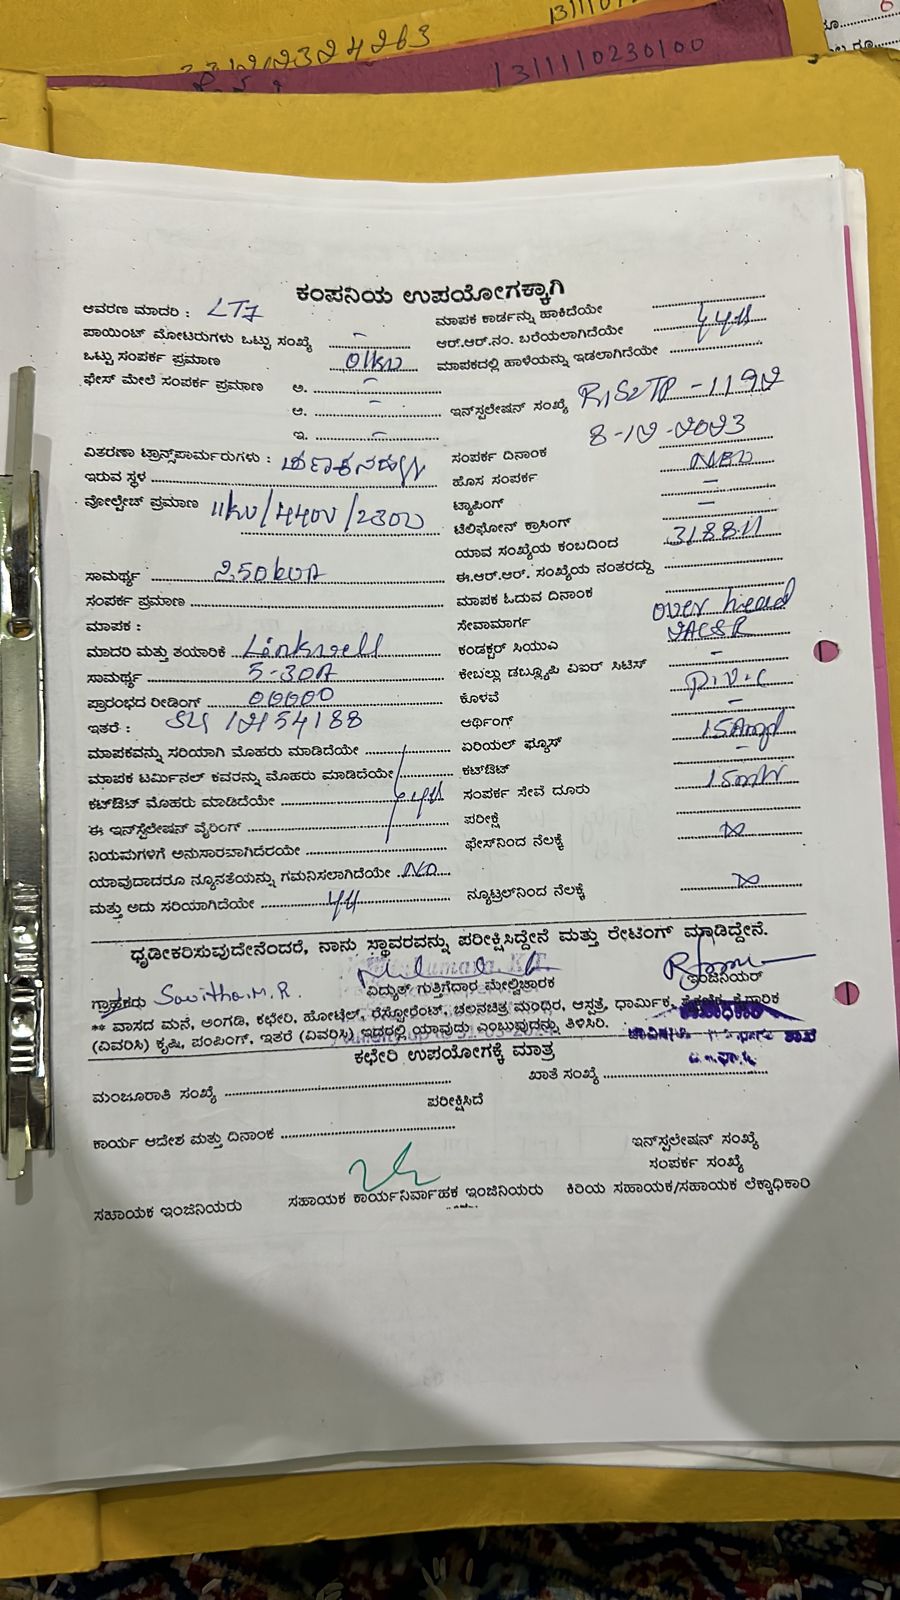 13111
331212324263
13111102301​00
ಕಂಪನಿಯ ಉಪಯೋಗಕ್ಕಾಗಿ
ಆವರಣ ಮಾದರಿ : LT7
ಮಾಪಕ ಕಾರ್ಡನ್ನು ಹಾಕಿದೆಯೇ
ಪಾಯಿಂಟ್ ಮೋಟರುಗಳು ಒಟ್ಟು ಸಂಖ್ಯೆ –
ಆರ್.ಆರ್.ನಂ. ಬರೆಯಲಾಗಿದೆಯೇ
ಒಟ್ಟು ಸಂಪರ್ಕ ಪ್ರಮಾಣ 01kw
ಮಾಪಕದಲ್ಲಿ ಹಾಳೆಯನ್ನು ಇಡಲಾಗಿದೆಯೇ
ಫೇಸ್ ಮೇಲೆ ಸಂಪರ್ಕ ಪ್ರಮಾಣ ಅ. –
ಆ. –
ಇನ್‌ಸ್ಪಲೇಷನ್ ಸಂಖ್ಯೆ
ಇ. –
ಸಂಪರ್ಕ ದಿನಾಂಕ 8-12-2023
ವಿತರಣಾ ಟ್ರಾನ್ಸ್‌ಪಾರ್ಮರುಗಳು :
ಇರುವ ಸ್ಥಳ
ಹೊಸ ಸಂಪರ್ಕ New
ಟ್ಯಾಪಿಂಗ್ –
ವೋಲ್ಟೇಚ್ ಪ್ರಮಾಣ 11kv/440v/230v
ಟೆಲಿಫೋನ್ ಕ್ರಾಸಿಂಗ್ –
ಯಾವ ಸಂಖ್ಯೆಯ ಕಂಬದಿಂದ
ಸಾಮರ್ಥ್ಯ 250kVA
ಈ.ಆರ್.ಆರ್. ಸಂಖ್ಯೆಯ ನಂತರದ್ದು
ಸಂಪರ್ಕ ಪ್ರಮಾಣ
ಮಾಪಕ ಓದುವ ದಿನಾಂಕ
ಮಾಪಕ :
ಸೇವಾಮಾರ್ಗ over head
ಮಾದರಿ ಮತ್ತು ತಯಾರಿಕೆ Linkwell
ಕಂಡಕ್ಟರ್ ಸಿಯುಎ
ಸಾಮರ್ಥ್ಯ 5-30A
ಕೇಬಲ್ಲು ಡಬ್ಲ್ಯೂಪಿ ವಿಐರ್ ಸಿಟಿಸ್ –
ಪ್ರಾರಂಭದ ರೀಡಿಂಗ್ 00000
ಕೊಳವೆ P.V.C
ಇತರೆ :
ಆರ್ಥಿಂಗ್ –
ಮಾಪಕವನ್ನು ಸರಿಯಾಗಿ ಮೊಹರು ಮಾಡಿದೆಯೇ
ಏರಿಯಲ್ ಫ್ಯೂಸ್ 15Amp
ಮಾಪಕ ಟರ್ಮಿನಲ್ ಕವರನ್ನು ಮೊಹರು ಮಾಡಿದೆಯೇ
ಕಟ್‌ಔಟ್ –
ಕಟ್‌ಔಟ್ ಮೊಹರು ಮಾಡಿದೆಯೇ
ಸಂಪರ್ಕ ಸೇವೆ ದೂರು
ಈ ಇನ್‌ಸ್ಟೆಲೇಷನ್ ವೈರಿಂಗ್
ಪರೀಕ್ಷೆ
ನಿಯಮಗಳಿಗೆ ಅನುಸಾರವಾಗಿದೆರಯೇ
ಫೇಸ್‌ನಿಂದ ನೆಲಕ್ಕೆ
ಯಾವುದಾದರೂ ನ್ಯೂನತೆಯನ್ನು ಗಮನಿಸಲಾಗಿದೆಯೇ NO
ಮತ್ತು ಅದು ಸರಿಯಾಗಿದೆಯೇ
ನ್ಯೂಟ್ರಲ್‌ನಿಂದ ನೆಲಕ್ಕೆ
ಧೃಡೀಕರಿಸುವುದೇನೆಂದರೆ, ನಾನು ಸ್ಥಾವರವನ್ನು ಪರೀಕ್ಷಿಸಿದ್ದೇನೆ ಮತ್ತು ರೇಟಿಂಗ್ ಮಾಡಿದ್ದೇನೆ.
ಗ್ರಾಹಕರು Savitha.M.R.
ವಿದ್ಯುತ್ ಗುತ್ತಿಗೆದಾರ ಮೇಲ್ವಿಚಾರಕ
ಇಂಜಿನಿಯರ್
** ವಾಸದ ಮನೆ, ಅಂಗಡಿ, ಕಛೇರಿ, ಹೋಟೆಲ್, ರೆಸ್ಟೋರೆಂಟ್, ಚಲನಚಿತ್ರ ಮಂದಿರ, ಆಸ್ಪತ್ರೆ, ಧಾರ್ಮಿಕ,
(ವಿವರಿಸಿ) ಕೃಷಿ, ಪಂಪಿಂಗ್, ಇತರೆ (ವಿವರಿಸಿ) ಇದರಲ್ಲಿ ಯಾವುದು ಎಂಬುವುದನ್ನು ತಿಳಿಸಿರಿ.
ಕಛೇರಿ ಉಪಯೋಗಕ್ಕೆ ಮಾತ್ರ
ಮಂಜೂರಾತಿ ಸಂಖ್ಯೆ
ಖಾತೆ ಸಂಖ್ಯೆ
ಪರೀಕ್ಷಿಸಿದೆ
ಕಾರ್ಯ ಆದೇಶ ಮತ್ತು ದಿನಾಂಕ
ಇನ್‌ಸ್ಪಲೇಷನ್ ಸಂಖ್ಯೆ
ಸಂಪರ್ಕ ಸಂಖ್ಯೆ
ಸಹಾಯಕ ಇಂಜಿನಿಯರು
ಸಹಾಯಕ ಕಾರ್ಯನಿರ್ವಾಹಕ ಇಂಜಿನಿಯರು
ಕಿರಿಯ ಸಹಾಯಕ/ಸಹಾಯಕ ಲೆಕ್ಕಾಧಿಕಾರಿ